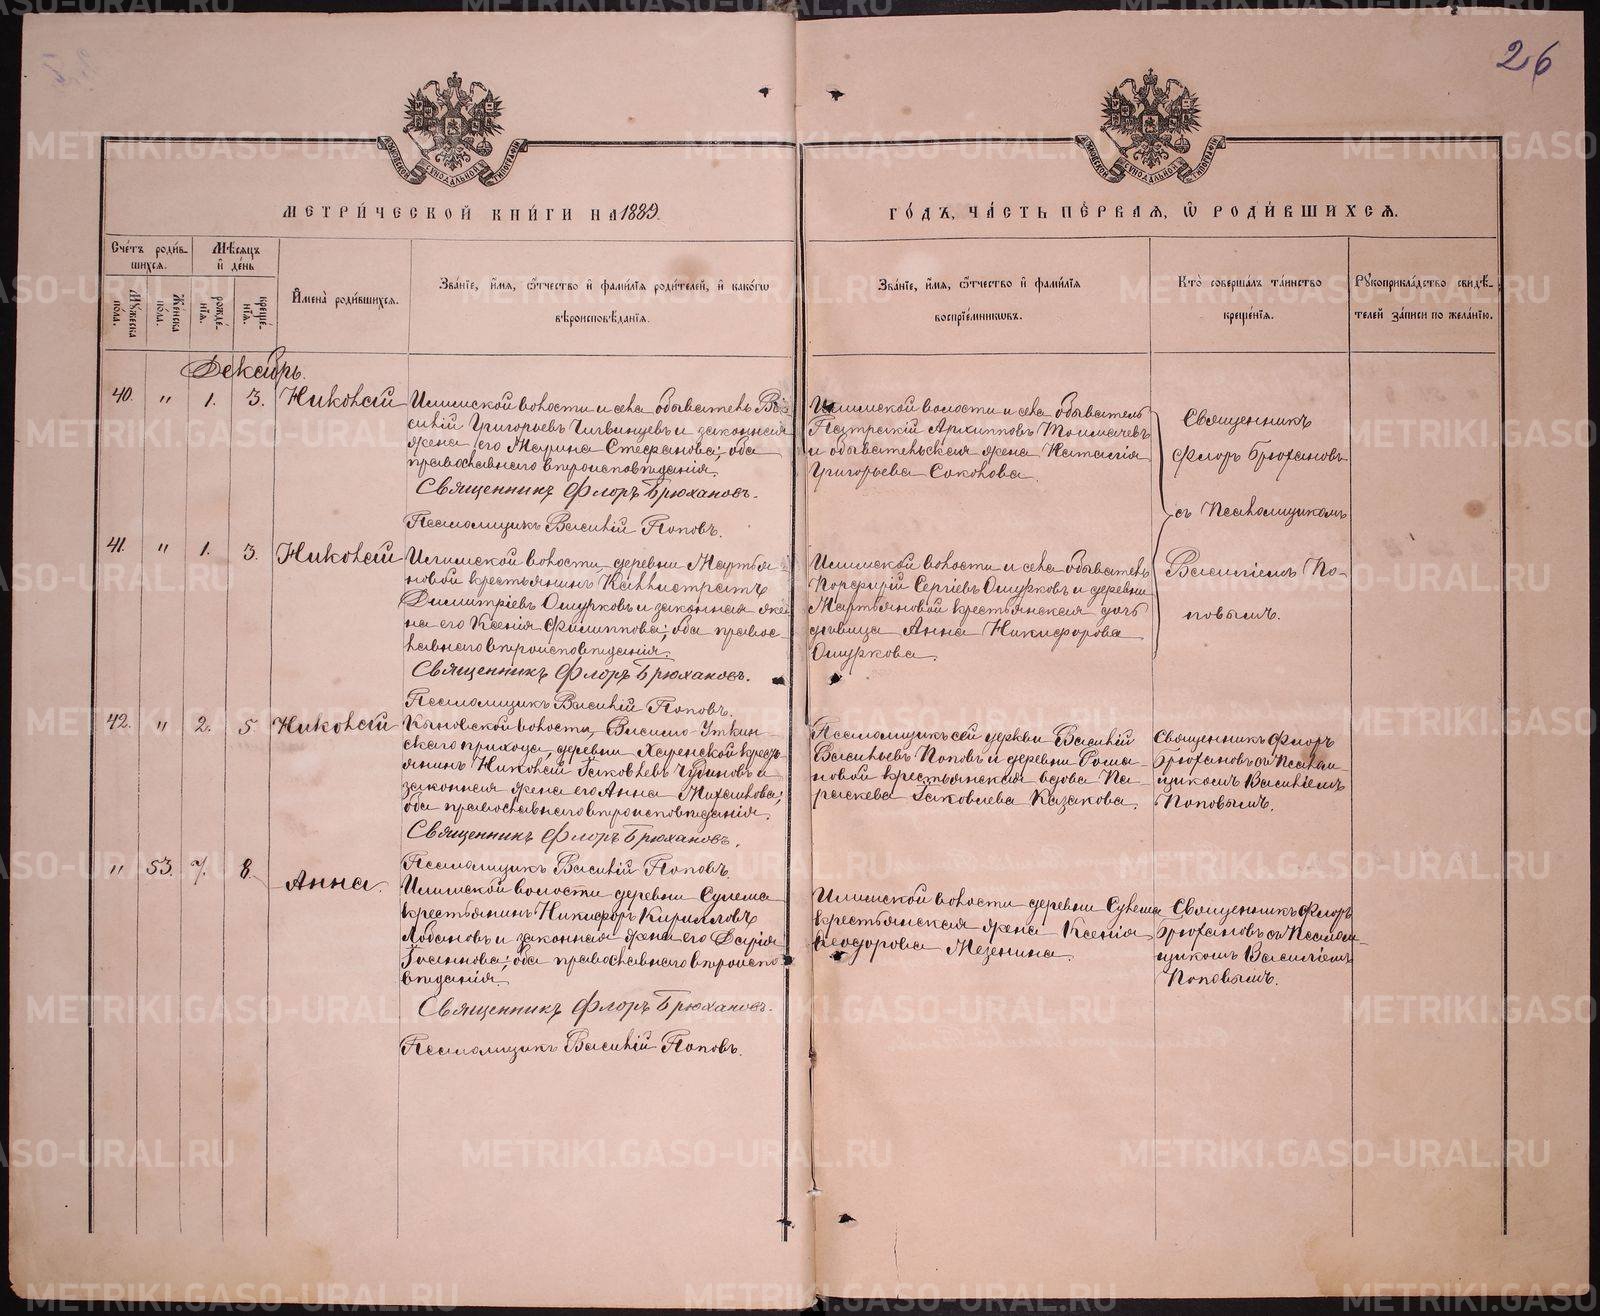 26
МЕТРИ́ЧЕСКОЙ КНИ́ГИ НА 1889.
ГО́ДЪ, ЧА́СТЬ ПЕ́РВАЯ, Ѡ РОДИ́ВШИХСЯ.
Сче́тъ роди́в-
шихся.
Мѣ́сяцъ
и де́нь
Му́жеска
по́ла.
Же́нска
по́ла.
рожде́-
нїя.
креще́-
нїя.
И҆мена̀ роди́вшихся.
Зва́нїе, и҆́мя, ѻ҆́тчество и҆ фами́лїя роди́телей, и҆ како́гѡ
вѣроисповѣ́данїя.
Зва́нїе, и҆́мя, ѻ҆́тчество и҆ фами́лїя
воспрїе́мникѡвъ.
Кто̀ соверша́лъ та́инство
креще́нїя.
Рꙋкоприкла́дство свидѣ́-
телей за́писи по жела́нїю.
Декабрь.
40. " 1. 3. Николай
Илимской волости и села обыватель Ва-
силій Григорьевъ Чигвинцевъ и законная
жена его Марина Стефанова; оба
православнаго вѣроисповѣданія.
Священникъ Флоръ Брюхановъ.
Псаломщикъ Василій Поповъ.
Илимской волости и села обыватель
Архипповъ
и обывательская жена Наталія
Григорьева Соколова.
Священникъ
Флоръ Брюхановъ
съ Псаломщикомъ
Василіемъ По-
повымъ.
41. " 1. 3. Николай
Илимской волости, деревни Мартья-
новой крестьянинъ Каллистратъ
Димитріевъ Ошурковъ и законная же-
на его Ксенія Филиппова; оба правос-
лавнаго вѣроисповѣданія.
Священникъ Флоръ Брюхановъ.
Псаломщикъ Василій Поповъ.
Илимской волости и села обыватель
Порфирій Сергіевъ Ошурковъ и деревни
Мартьяновой крестьянская дочь
дѣвица Анна Никифорова
Ошуркова.
42. " 2. 5. Николай
Кыновской волости, Висимо-Уткин-
скаго прихода, деревни Харенской крест-
янинъ Николай Іаковлевъ Чудиновъ и
законная жена его Анна Михайлова;
оба православнаго вѣроисповѣданія.
Священникъ Флоръ Брюхановъ.
Псаломщикъ Василій Поповъ.
Псаломщикъ сей церкви Василій
Васильевъ Поповъ и деревни Рома-
новой крестьянская вдова Па-
раскева Іаковлева Казакова.
Священникъ Флоръ
Брюхановъ съ Псалом-
щикомъ Василіемъ
Поповымъ.
" 53. 7. 8. Анна.
Илимской волости деревни Сулема
крестьянинъ Никифоръ Кирилловъ
Лобановъ и законная жена его Дарія
Іоаннова; оба православнаго вѣроиспо-
вѣданія.
Священникъ Флоръ Брюхановъ.
Псаломщикъ Василій Поповъ.
Илимской волости деревни Сулема
крестьянская жена Ксенія
Ѳеодорова Мезенина.
Священникъ Флоръ
Брюхановъ съ Псалом-
щикомъ Василіемъ
Поповымъ.
METRIKI.GASO-URAL.RU